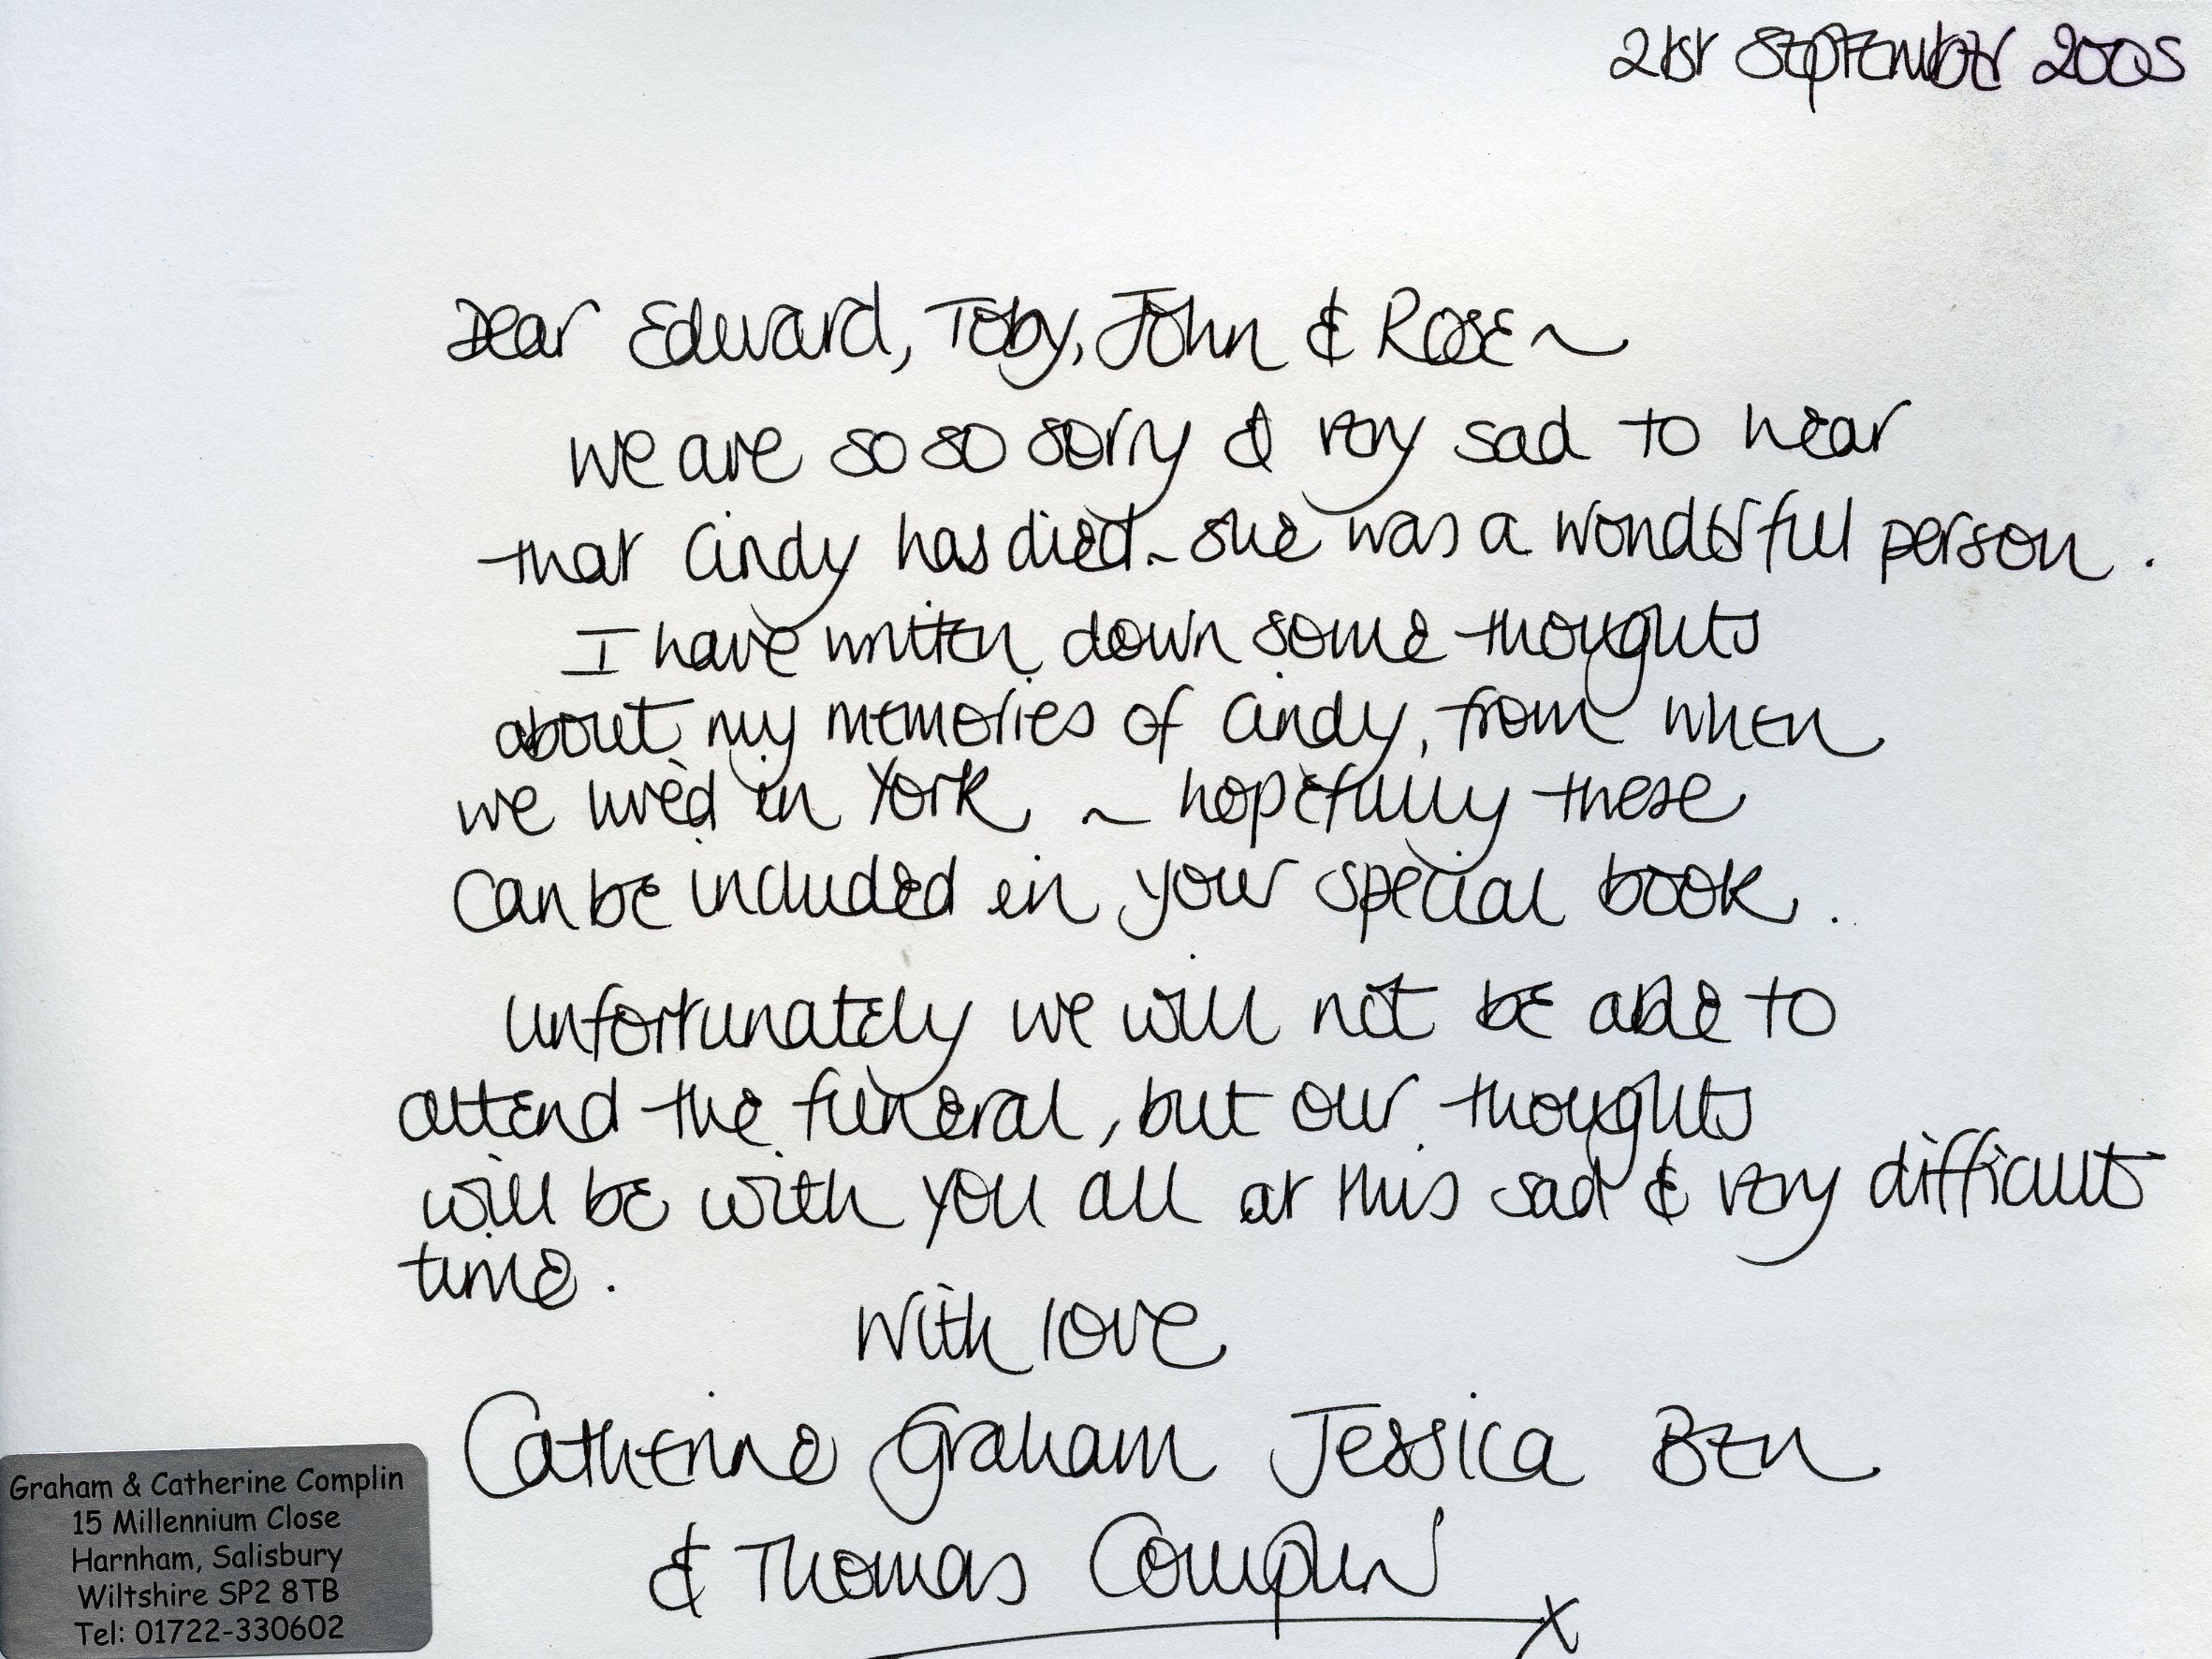 21st September 2005
Dear Edward, Toby, John & Rose ~
we are so so sorry & very sad to hear
that Cindy has died ~ she was a wonderful person.
I have written down some thoughts
about my memories of Cindy, from when
we lived in York ~ hopefully these
can be included in your special book.
Unfortunately we will not be able to
attend the funeral, but our thoughts
will be with you all at this sad & very difficult
time.
With love
Catherine Graham Jessica Ben
& Thomas Complin
x
Graham & Catherine Complin
15 Millennium Close
Harnham, Salisbury
Wiltshire SP2 8TB
Tel: 01722-330602